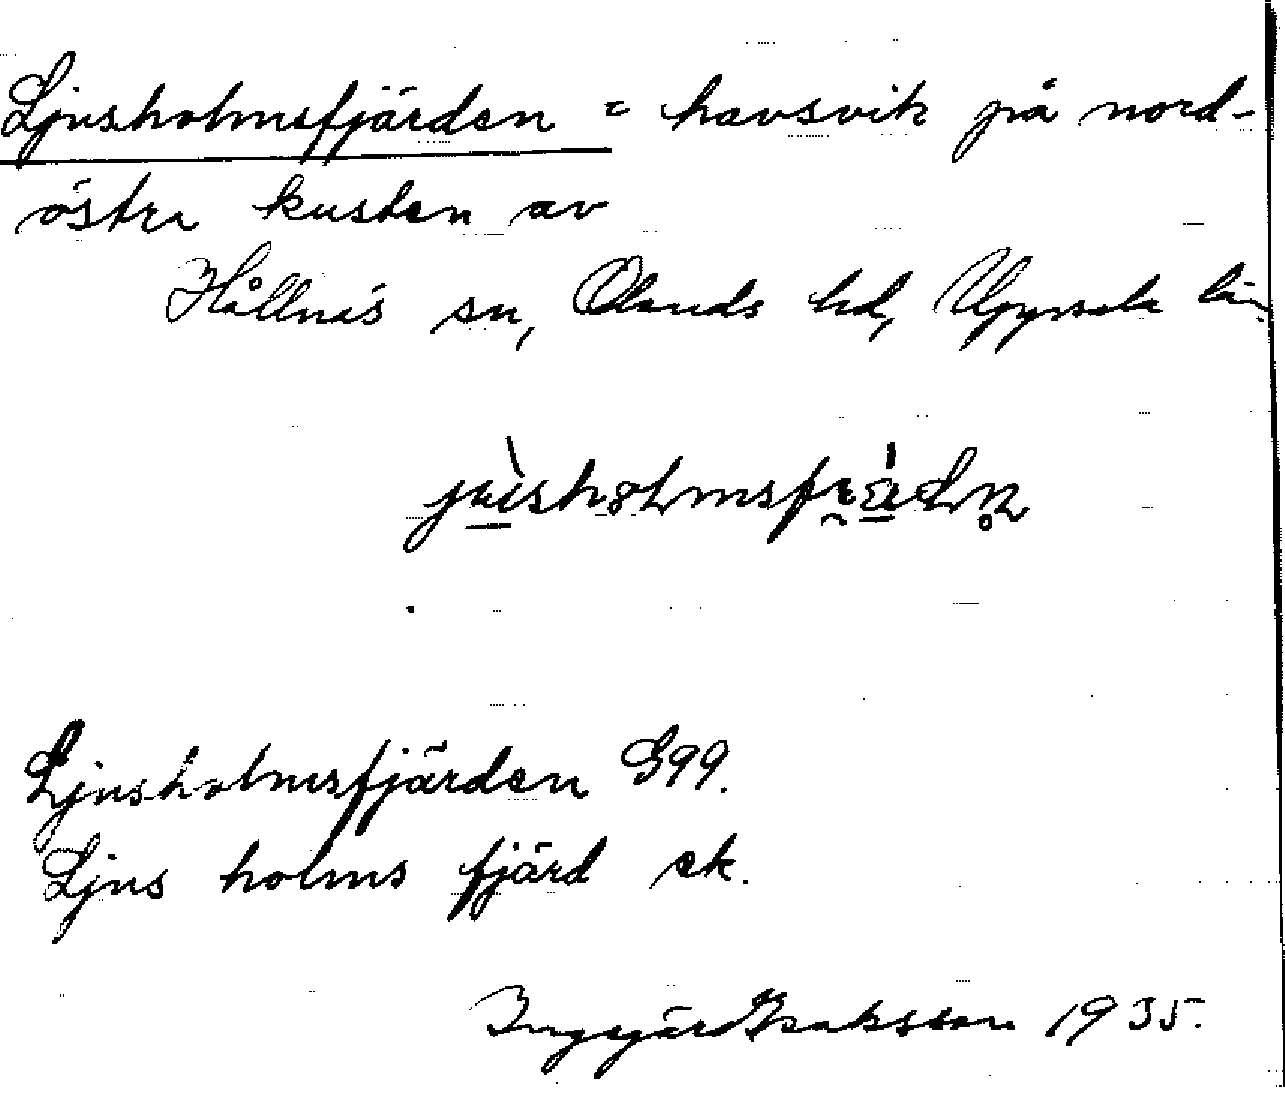 Ljusholmsfjärden = havsvik på nord-
östra kusten av
Hållnäs sn, Olands hd, Uppsala län
Ljusholmsfjärden G99.
Ljus holms fjärd ek.
Ingegärd Isaksson 1935.